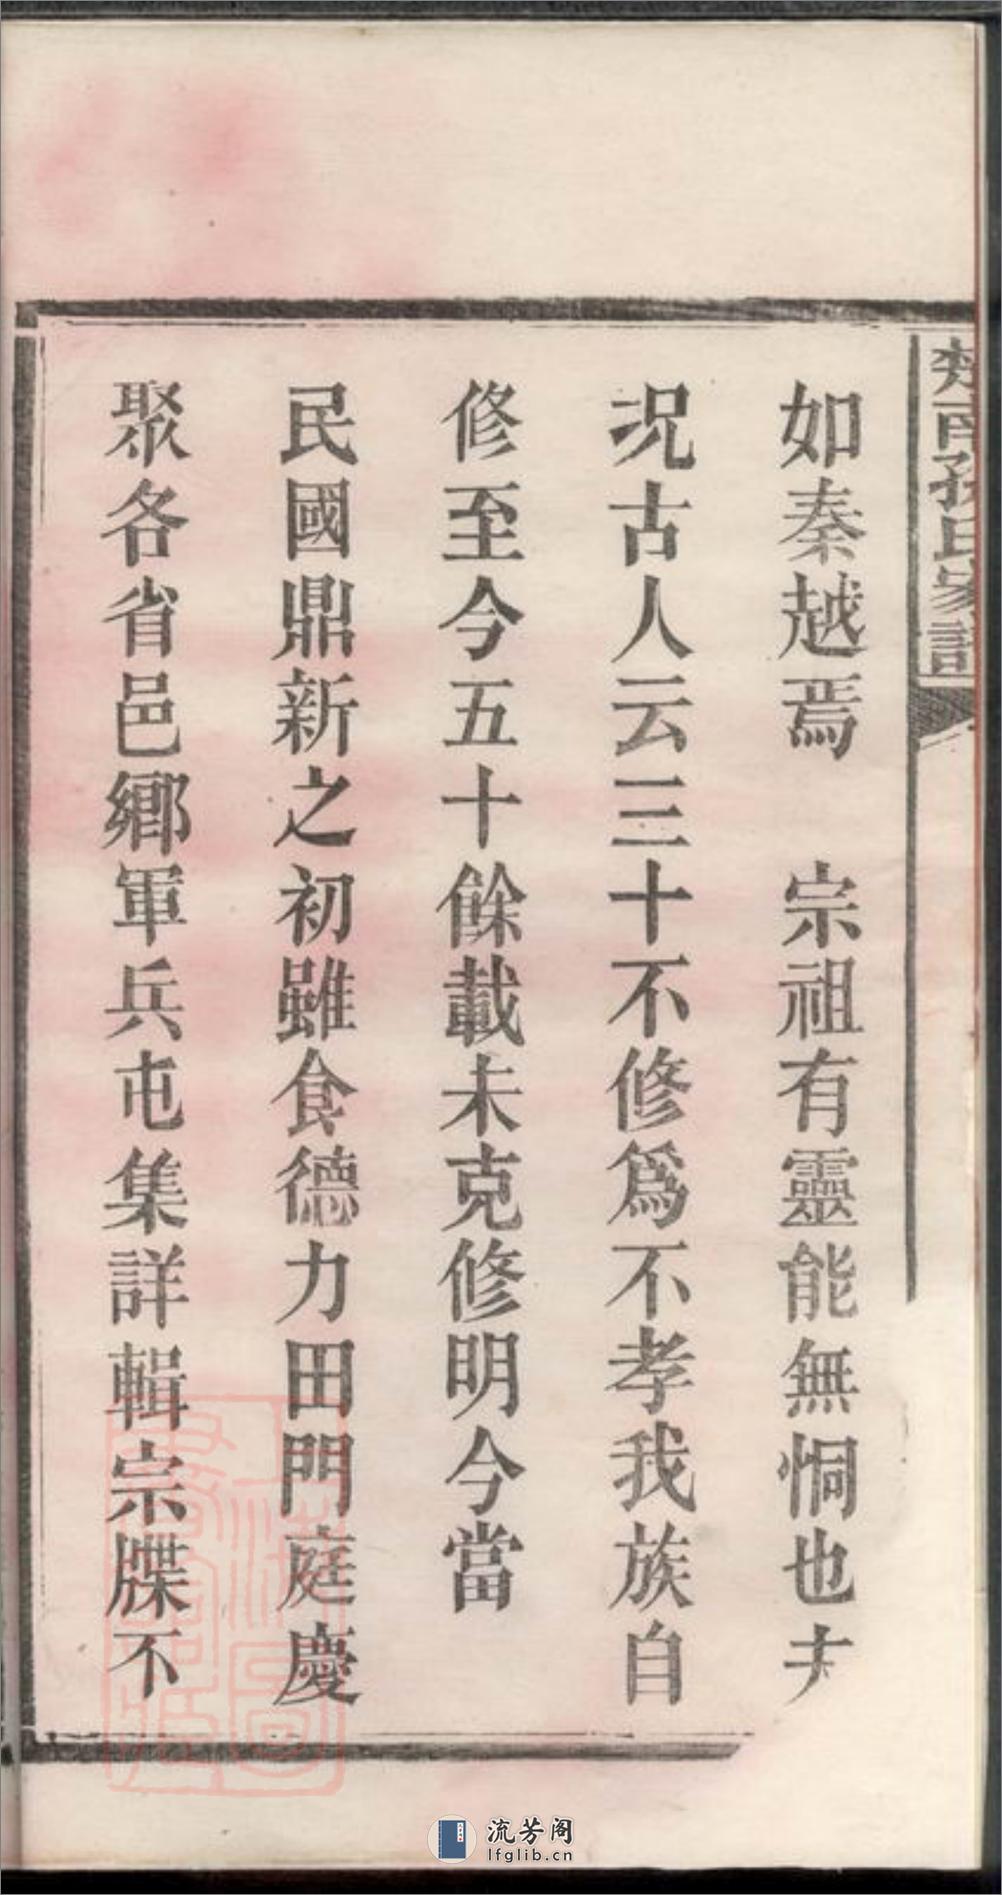 南孫氏家譜
如秦越焉　宗祖有靈能無恫也夫
况古人云三十不修爲不孝我族自
修至今五十餘載未克修明今當
民國鼎新之初雖食德力田門庭慶
聚各省邑鄉軍兵屯集詳輯宗牒不
流芳阁
lfglib.cn